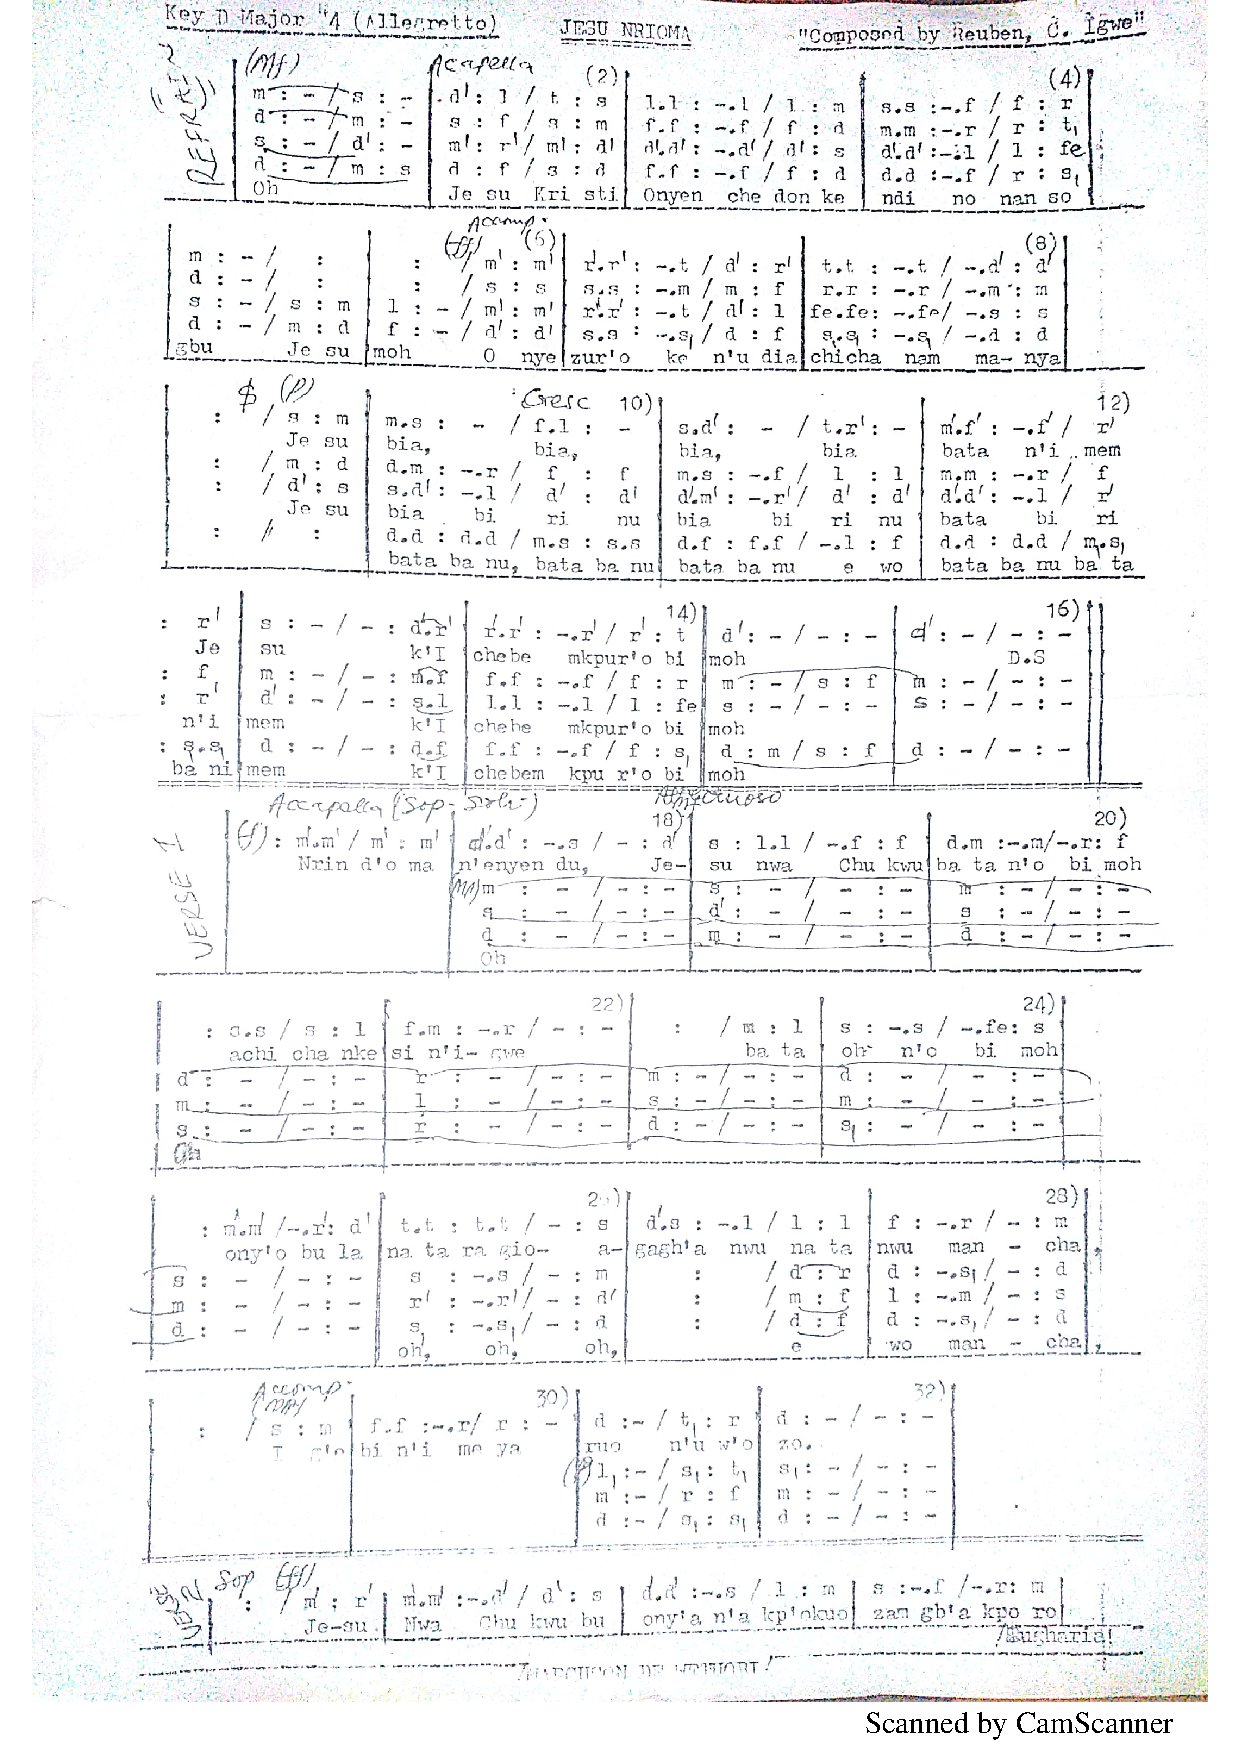 Key D Major "4 (Allegretto) JESU NRIOMA "Composed by Reuben, C. Igwe"
REFRAIN (Mf) Acapella (2) (4)
m : - / s : - .d' : l / t : s l.l : -.l / l : m s.s :-.f / f : r
d : - / m : - s : f / s : m f.f : -.f / f : d m.m :-.r / r : t₁
s : - / d' : - m' : r' / m' : d' d'.d' : -.d' / d' : s d'.d' :-.l / l : fe
d : - / m : s d : f / s : d f.f : -.f / f : d d.d :-.f / r : s₁
Oh Je su Kri sti Onyen che don ke ndi no nan so
Accomp.
(ff) (6) (8)
m : - / : : / m' : m' r'.r' : -.t / d' : r' t.t : -.t / -.d' : d'
d : - / : : / s : s s.s : -.m / m : f r.r : -.r / -.m : m
s : - / s : m l : - / m' : m' r'.r' : -.t / d' : l fe.fe: -.fe/ -.s : s
d : - / m : d f : - / d' : d' s.s : -.s₁ / d : f s₁.s₁ : -.s₁ / -.d : d
gbu Je su moh O nye zur'o ke n'u dia chicha nam ma- nya
$ (P) Cresc 10) 12)
: / s : m m.s : - / f.l : - s.d' : - / t.r' : - m'.f' : -.f' / r'
Je su bia, bia, bia, bia bata n'i mem
: / m : d d.m : -.r / f : f m.s : -.f / l : l m.m : -.r / f
: / d' : s s.d' : -.l / d' : d' d'.m' : -.r' / d' : d' d'.d' : -.l / r'
Je su bia bi ri nu bia bi ri nu bata bi ri
: / : d.d : d.d / m.s : s.s d.f : f.f / -.l : f d.d : d.d / m.s₁
bata ba nu, bata ba nu bata ba nu e wo bata ba nu ba ta
14) 16)
: r' s : - / - : d'.r' r'.r' : -.r' / r' : t d' : - / - : - d' : - / - : -
Je su k'I chebe mkpur'o bi moh D.S
: f m : - / - : m.f f.f : -.f / f : r m : - / s : f m : - / - : -
: r' d' : - / - : s.l l.l : -.l / l : fe s : - / - : - s : - / - : -
n'i mem k'I chebe mkpur'o bi moh
: s₁.s₁ d : - / - : d.f f.f : -.f / f : s₁ d : m / s : f d : - / - : -
ba ni mem k'I chebem kpu r'o bi moh
VERSE 1 Accapella (Sop. Solo) Affectuoso
(f) : m'.m' / m' : m' d'.d' : -.s / - : d' 18) s : l.l / -.f : f d.m :-.m/-.r: f 20)
Nrin d'o ma n'enyen du, Je- su nwa Chu kwu ba ta n'o bi moh
(Mf) m : - / - : - s : - / - : - m : - / - : -
s : - / - : - d' : - / - : - s : - / - : -
d : - / - : - m : - / - : - d : - / - : -
Oh
22) 24)
: s.s / s : l f.m : -.r / - : - : / m : l s : -.s / -.fe: s
achi cha nke si n'i- gwe ba ta oh n'o bi moh
d : - / - : - r : - / - : - m : - / - : - d : - / - : -
m : - / - : - l : - / - : - s : - / - : - m : - / - : -
s : - / - : - r : - / - : - d : - / - : - s₁ : - / - : -
Oh
26) 28)
: m'.m' /-.r': d' t.t : t.t / - : s d'.s : -.l / l : l f : -.r / - : m
ony'o bu la na ta ra gio- a- gagh'a nwu na ta nwu man - cha,
s : - / - : - s : -.s / - : m : / d : r d : -.s₁ / - : d
m : - / - : - r' : -.r' / - : d' : / m : f l : -.m / - : s
d : - / - : - s₁ : -.s₁ / - : d : / d : f d : -.s₁ / - : d
oh, oh, oh, e wo man - cha,
Accomp.
(Mf) 30) 32)
: / s : m f.f :-.r/ r : - d :- / t₁ : r d : - / - : -
I bi n'i me ya ruo n'u w'o zo.
(P) l₁ :- / s₁ : t₁ s₁ : - / - : -
m :- / r : f m : - / - : -
d :- / s₁ : s₁ d : - / - : -
Sop (ff)
: / m' : r' m'.m' :-.d' / d' : s d'.d' :-.s / l : m s :-.f /-.r: m
Je-su Nwa Chu kwu bu ony'a n'a kp'okuo zan gb'a kpo ro
Scanned by CamScanner